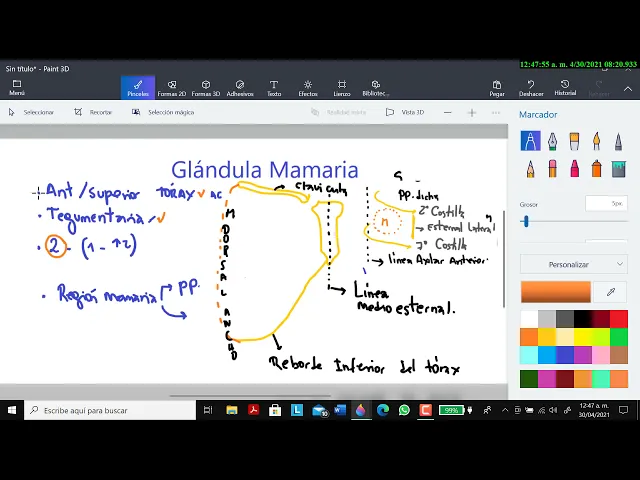 12:47:55 a. m. 4/30/2021 08:20.933
Sin título* - Paint 3D
Menú
Pinceles
Formas 2D
Formas 3D
Adhesivos
Texto
Efectos
Lienzo
Bibliotec...
Pegar
Deshacer
Historial
Seleccionar
Recortar
Selección mágica
Vista 3D
Marcador
Grosor
5px
Personalizar
Glándula Mamaria
Ant/superior TÓRAX AC
Tegumentaria
2 - (1 - 12)
Región mamaria
PP.
M DORSAL ANCHO
clavicula
Línea
medio esternal.
Reborde Inferior del tórax
PP. dicha
2° Costilla
n
esternal lateral
7° Costilla
línea Axilar Anterior.
Escribe aquí para buscar
10
99%
12:47 a. m.
30/04/2021